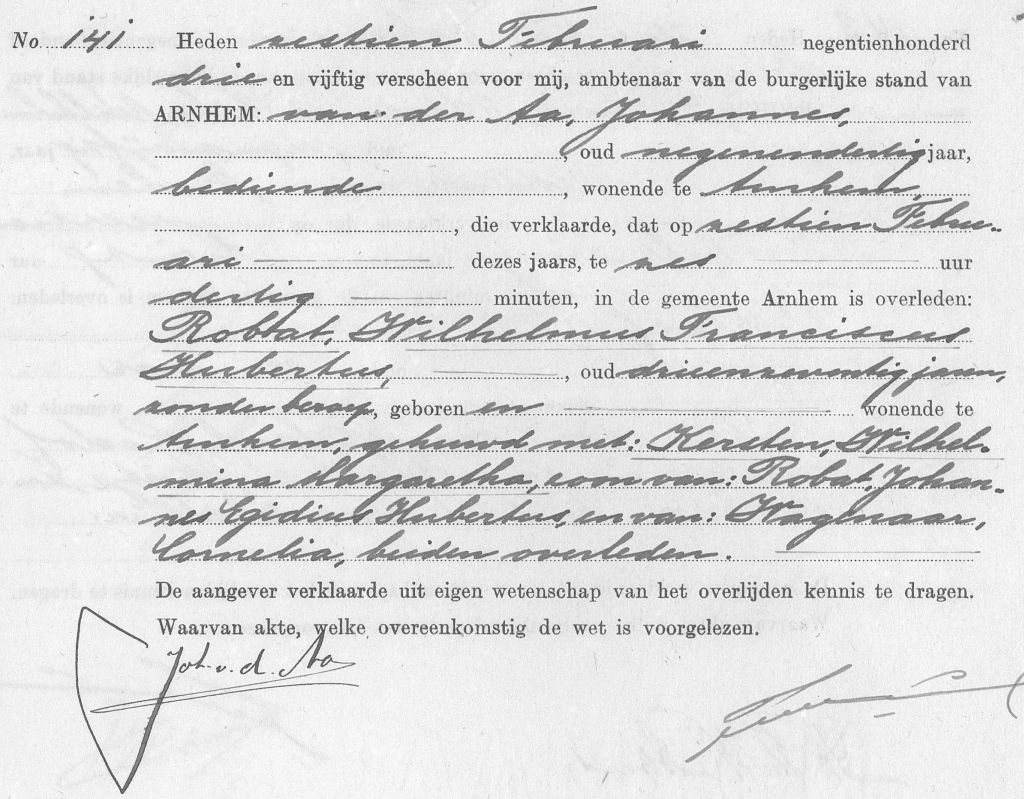 No. 141 Heden zestien Februari negentienhonderd
drie en vijftig verscheen voor mij, ambtenaar van de burgerlijke stand van
ARNHEM: van der Aa, Johannes,
, oud negenendertig jaar,
bediende, wonende te Arnhem,
, die verklaarde, dat op zestien Febru-
ari dezes jaars, te zes uur
dertig minuten, in de gemeente Arnhem is overleden:
Robbat, Wilhelmus Franciscus
Hubertus, oud drieenzeventig jaar,
zonder beroep, geboren en wonende te
Arnhem, gehuwd met: Kersten, Wilhel-
mina Margaretha, zoon van: Robat, Johan-
nes Egidius Hubertus, en van: Wagenaar,
Cornelia, beiden overleden.
De aangever verklaarde uit eigen wetenschap van het overlijden kennis te dragen.
Waarvan akte, welke overeenkomstig de wet is voorgelezen.
Joh. v. d. Aa